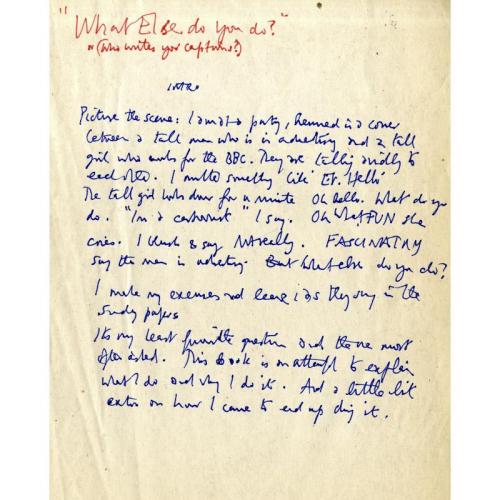 "What Else do you do?"
or (who writes your captions?)
INTRO
Picture the scene: I am at a party, hemmed in a corner
between a tall man who is in advertising and a tall
girl who works for the BBC. They are talking avidly to
each other. I mutter something like 'Er. Hello'
The tall girl looks down for a minute Oh hello. What do you
do. "I'm a cartoonist" I say. Oh What FUN she
cries. I blush & say NAturally. FASCINATING
say the man in advertising. But What else do you do?
I make my excuses and leave as they say in the
Sunday papers
It's my least favourite question and the one most
often asked. This book is an attempt to explain
what I do and why I do it. And a little bit
extra on how I came to end up doing it.